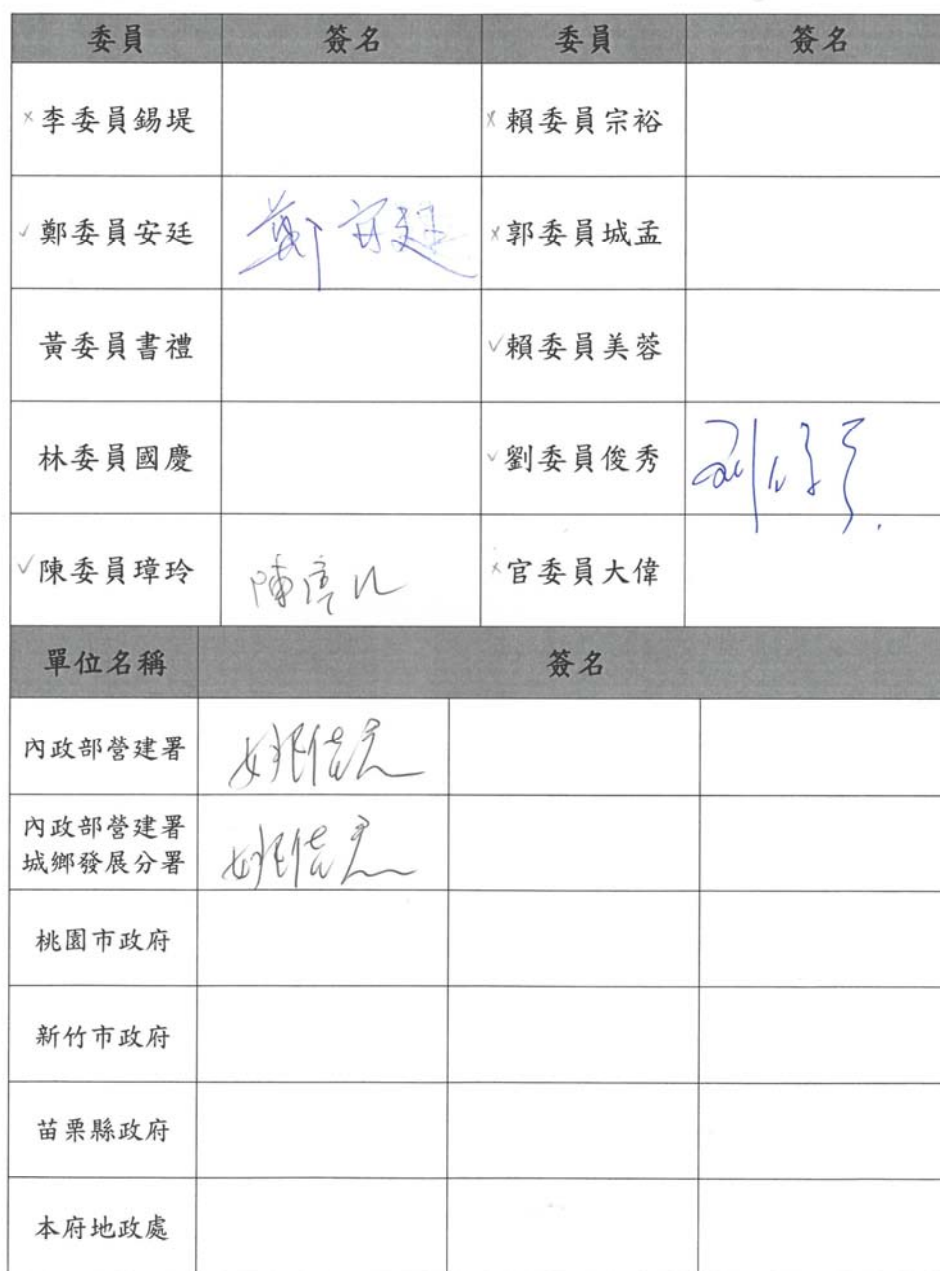 委員 簽名 委員 簽名
×李委員錫堤 ×賴委員宗裕
✓鄭委員安廷 鄭安廷 ×郭委員城孟
黃委員書禮 ✓賴委員美蓉
林委員國慶 ✓劉委員俊秀 劉俊秀
✓陳委員璋玲 陳璋玲 ×官委員大偉
單位名稱 簽名
內政部營建署
內政部營建署
城鄉發展分署
桃園市政府
新竹市政府
苗栗縣政府
本府地政處